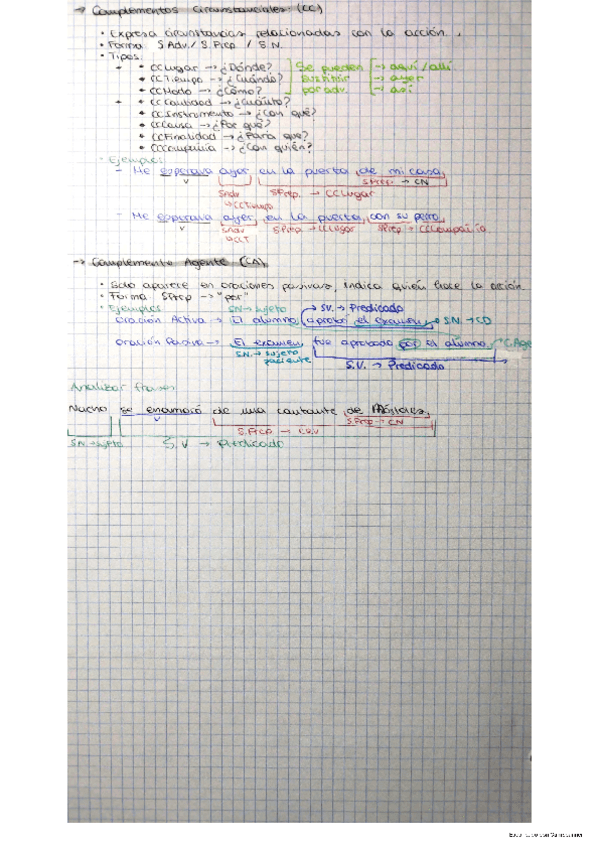 → Complementos Circunstanciales: (CC)
• Expresa circunstancias relacionadas con la acción.
• Forma: S.Adv. / S.Prep. / S.N.
• Tipos:
• CCLugar → ¿Dónde? Se pueden → aquí/allí
• CCTiempo → ¿Cuándo? sustituir → ayer
• CCModo → ¿Cómo? por adv. → así
• CCCantidad → ¿Cuánto?
• CCInstrumento → ¿Con qué?
• CCCausa → ¿Por qué?
• CCFinalidad → ¿Para qué?
• CCCompañía → ¿Con quién?
• Ejemplos:
– Me esperaba ayer en la puerta de mi casa
V S.Prep. → CN
SAdv S.Prep. → CCLugar
→ CCTiempo
– Me esperaba ayer en la puerta con su perro
V SAdv S.Prep. → CCLugar S.Prep. → CCCompañía
CCT
→ Complemento Agente (CA)
• Solo aparece en oraciones pasivas, indica quién hace la acción
• Forma: S.Prep → "por"
• Ejemplos: SN → sujeto SV. → Predicado
Oración Activa → El alumno aprobó el examen → S.N. → CD
Oración Pasiva → El examen fue aprobado por el alumno → C.Age
S.N. → sujeto
paciente
S.V. → Predicado
Analizar frases
Nacho se enamoró de una cantante de Móstoles
V S.Prep → CN
S.Prep. → C.R.V
SN → sujeto S.V → Predicado